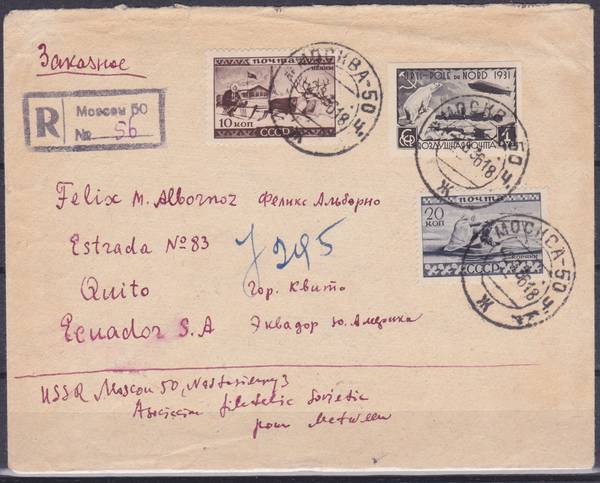 Заказное
R Moscou 50
№ 56
почта
10 коп
СССР
МОСКВА-50
URSS-POLE DU NORD 1931
ВОЗДУШНАЯ ПОЧТА
МОСКВА-50
20 коп
почта
СССР
МОСКВА-50
Felix M. Albornoz Феликс Альборно
Estrada № 83
Quito гор. Квито
Ecuador S.A Эквадор Ю. Америка
USSR Moscou 50, Nastasiensy 3
filatelic Sovietic
pour